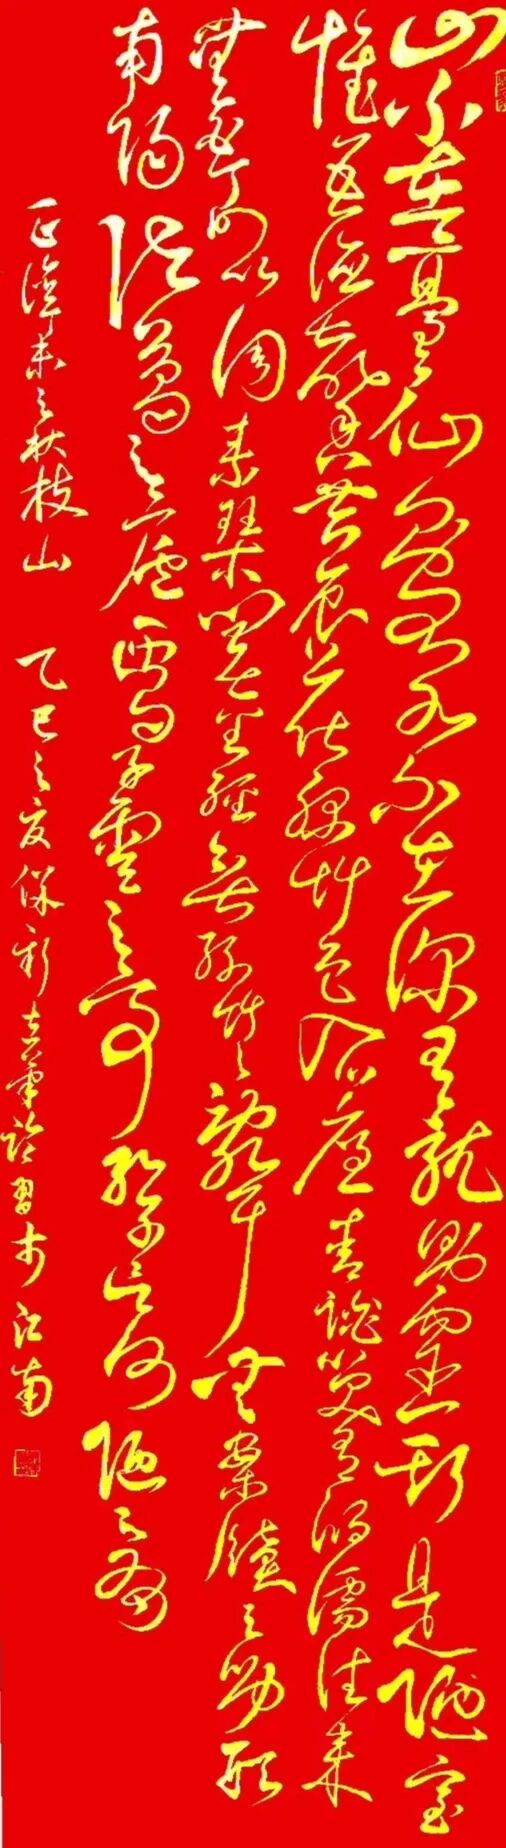 山不在高有仙則名水不在深有龍則靈斯是陋室
惟吾德馨苔痕上階綠草色入簾青談笑有鴻儒往來
無白丁可以調素琴閱金經無絲竹之亂耳無案牘之勞形
南陽諸葛之廬西蜀子雲之亭孔子云何陋之有
正德辛未之秋枝山 乙巳之夏 臨習於江南